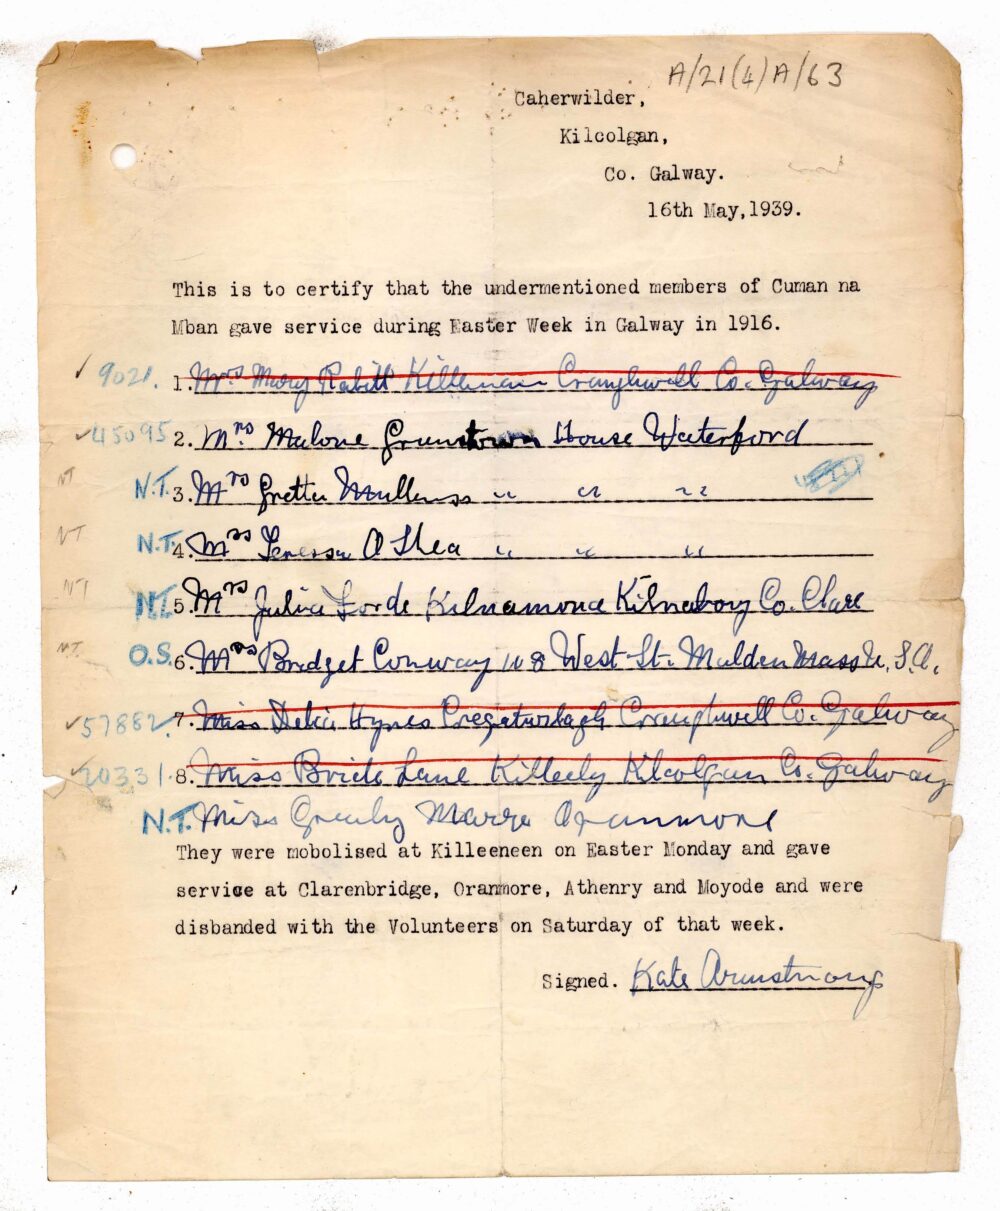 A/21(4)A/63
Caherwilder,
Kilcolgan,
Co. Galway.
16th May,1939.
This is to certify that the undermentioned members of Cuman na
Mban gave service during Easter Week in Galway in 1916.
✓ 9021. 1. Mrs Mary Rabitt Killeenan Craughwell Co. Galway
✓ 45095 2. Mrs Malone Grunstown House Waterford
NT N.T. 3. Mrs Gretta Mullens " " "
NT N.T. 4. Mrs Teressa O Shea " " "
NT N.T. 5. Mrs Julia Forde Kilnamona Kilnaboy Co. Clare
NT. O.S. 6. Mrs Bridget Conway 108 West St. Malden Mass U.S.A.
✓ 57882. 7. Miss Delia Hynes Cregaturlagh Craughwell Co. Galway
✓ 20331. 8. Miss Bride Lane Killeely Kilcolgan Co. Galway
N.T. Miss Greally Oranmore
They were mobolised at Killeeneen on Easter Monday and gave
service at Clarenbridge, Oranmore, Athenry and Moyode and were
disbanded with the Volunteers on Saturday of that week.
Signed. Kate Armstrong